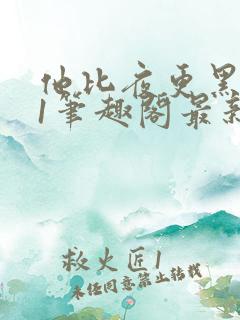 他比夜更黑
1笔趣阁最新
救火匠1
未经同意禁止转载